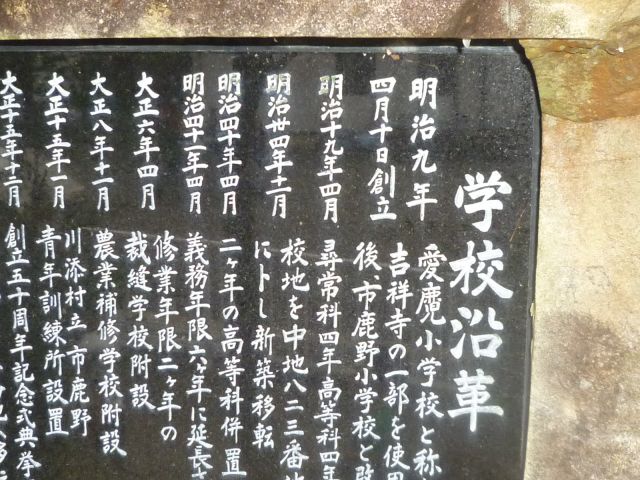 学校沿革
明治九年 愛魔小学校と称
四月十日創立 吉祥寺の一部を使用
後、市鹿野小学校と改
明治十九年四月 尋常科四年高等科四年
明治丗四年十二月 校地を中地八二三番地
に卜し新築移転
明治四十年四月 二ヶ年の高等科併置
明治四十一年四月 義務年限六ヶ年に延長さ
修業年限二ヶ年の
大正六年四月 裁縫学校附設
大正八年十一月 農業補修学校附設
大正十五年一月 川添村立市鹿野
青年訓練所設置
大正十五年十二月 創立五十周年記念式典挙